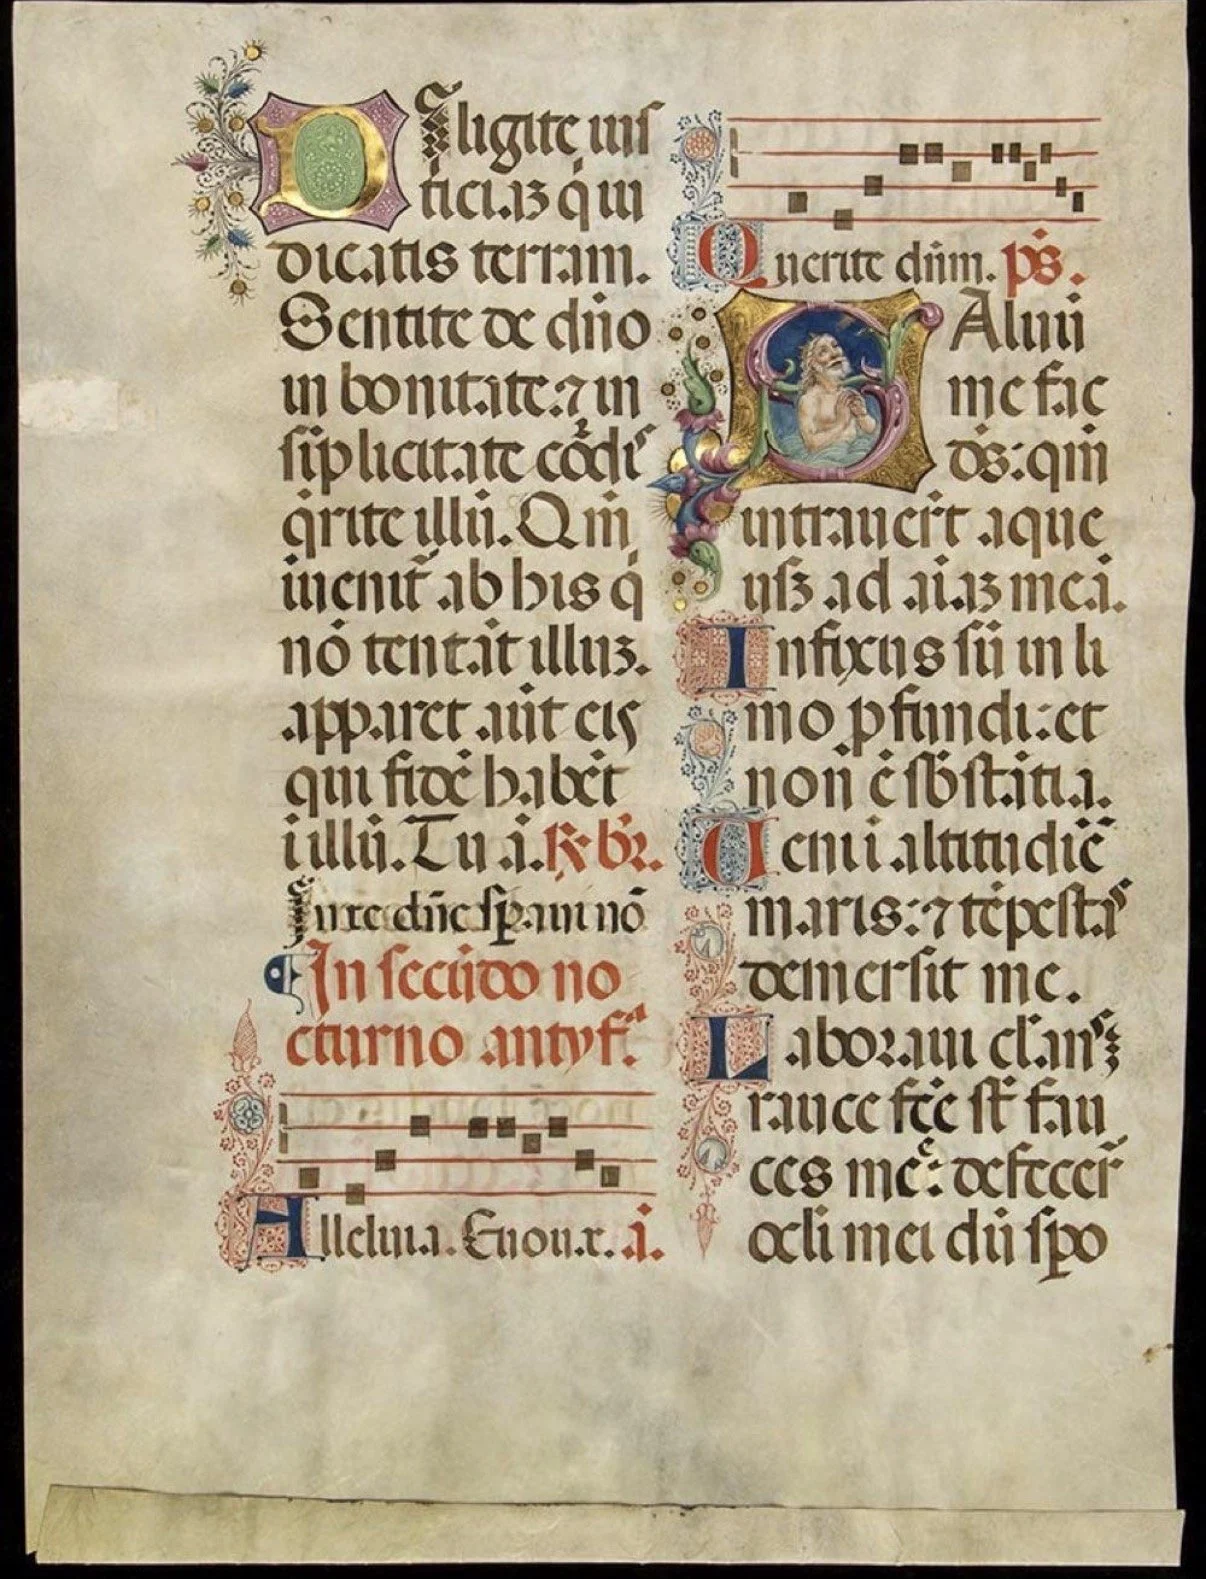 Diligite ius
ticiaꝫ q̇ iu
dicatis terram.
Sentite de dn̄o
in bonitate: ⁊ in
sīplicitate cōdis
q̇rite illū. Qm̄
iuenit᷑ ab his q̇
nō tentāt illuꝫ.
apparet aūt eis
qui fidē habēt
i illū. Tu a. ℟. br̄.
in te dn̄e sꝑaui nō
In secūdo no
cturno antyf.ᵃ
Alleluia. Euouae. a.
Querite dn̄m. ps̄.
Saluū
me fac
ds̄: qm̄
intrauer̄t aque
usꝫ ad aīaꝫ meā.
Infixus sū in li
mo ꝓfundi: et
non ē sb̄stātia.
Ueni i altitudīe
maris: ⁊ tēpestas
demersit me.
Laboraui claṁs
rauce fcē st̄ fau
ces meᵉ: defecer̄
ocli mei dū sꝑo